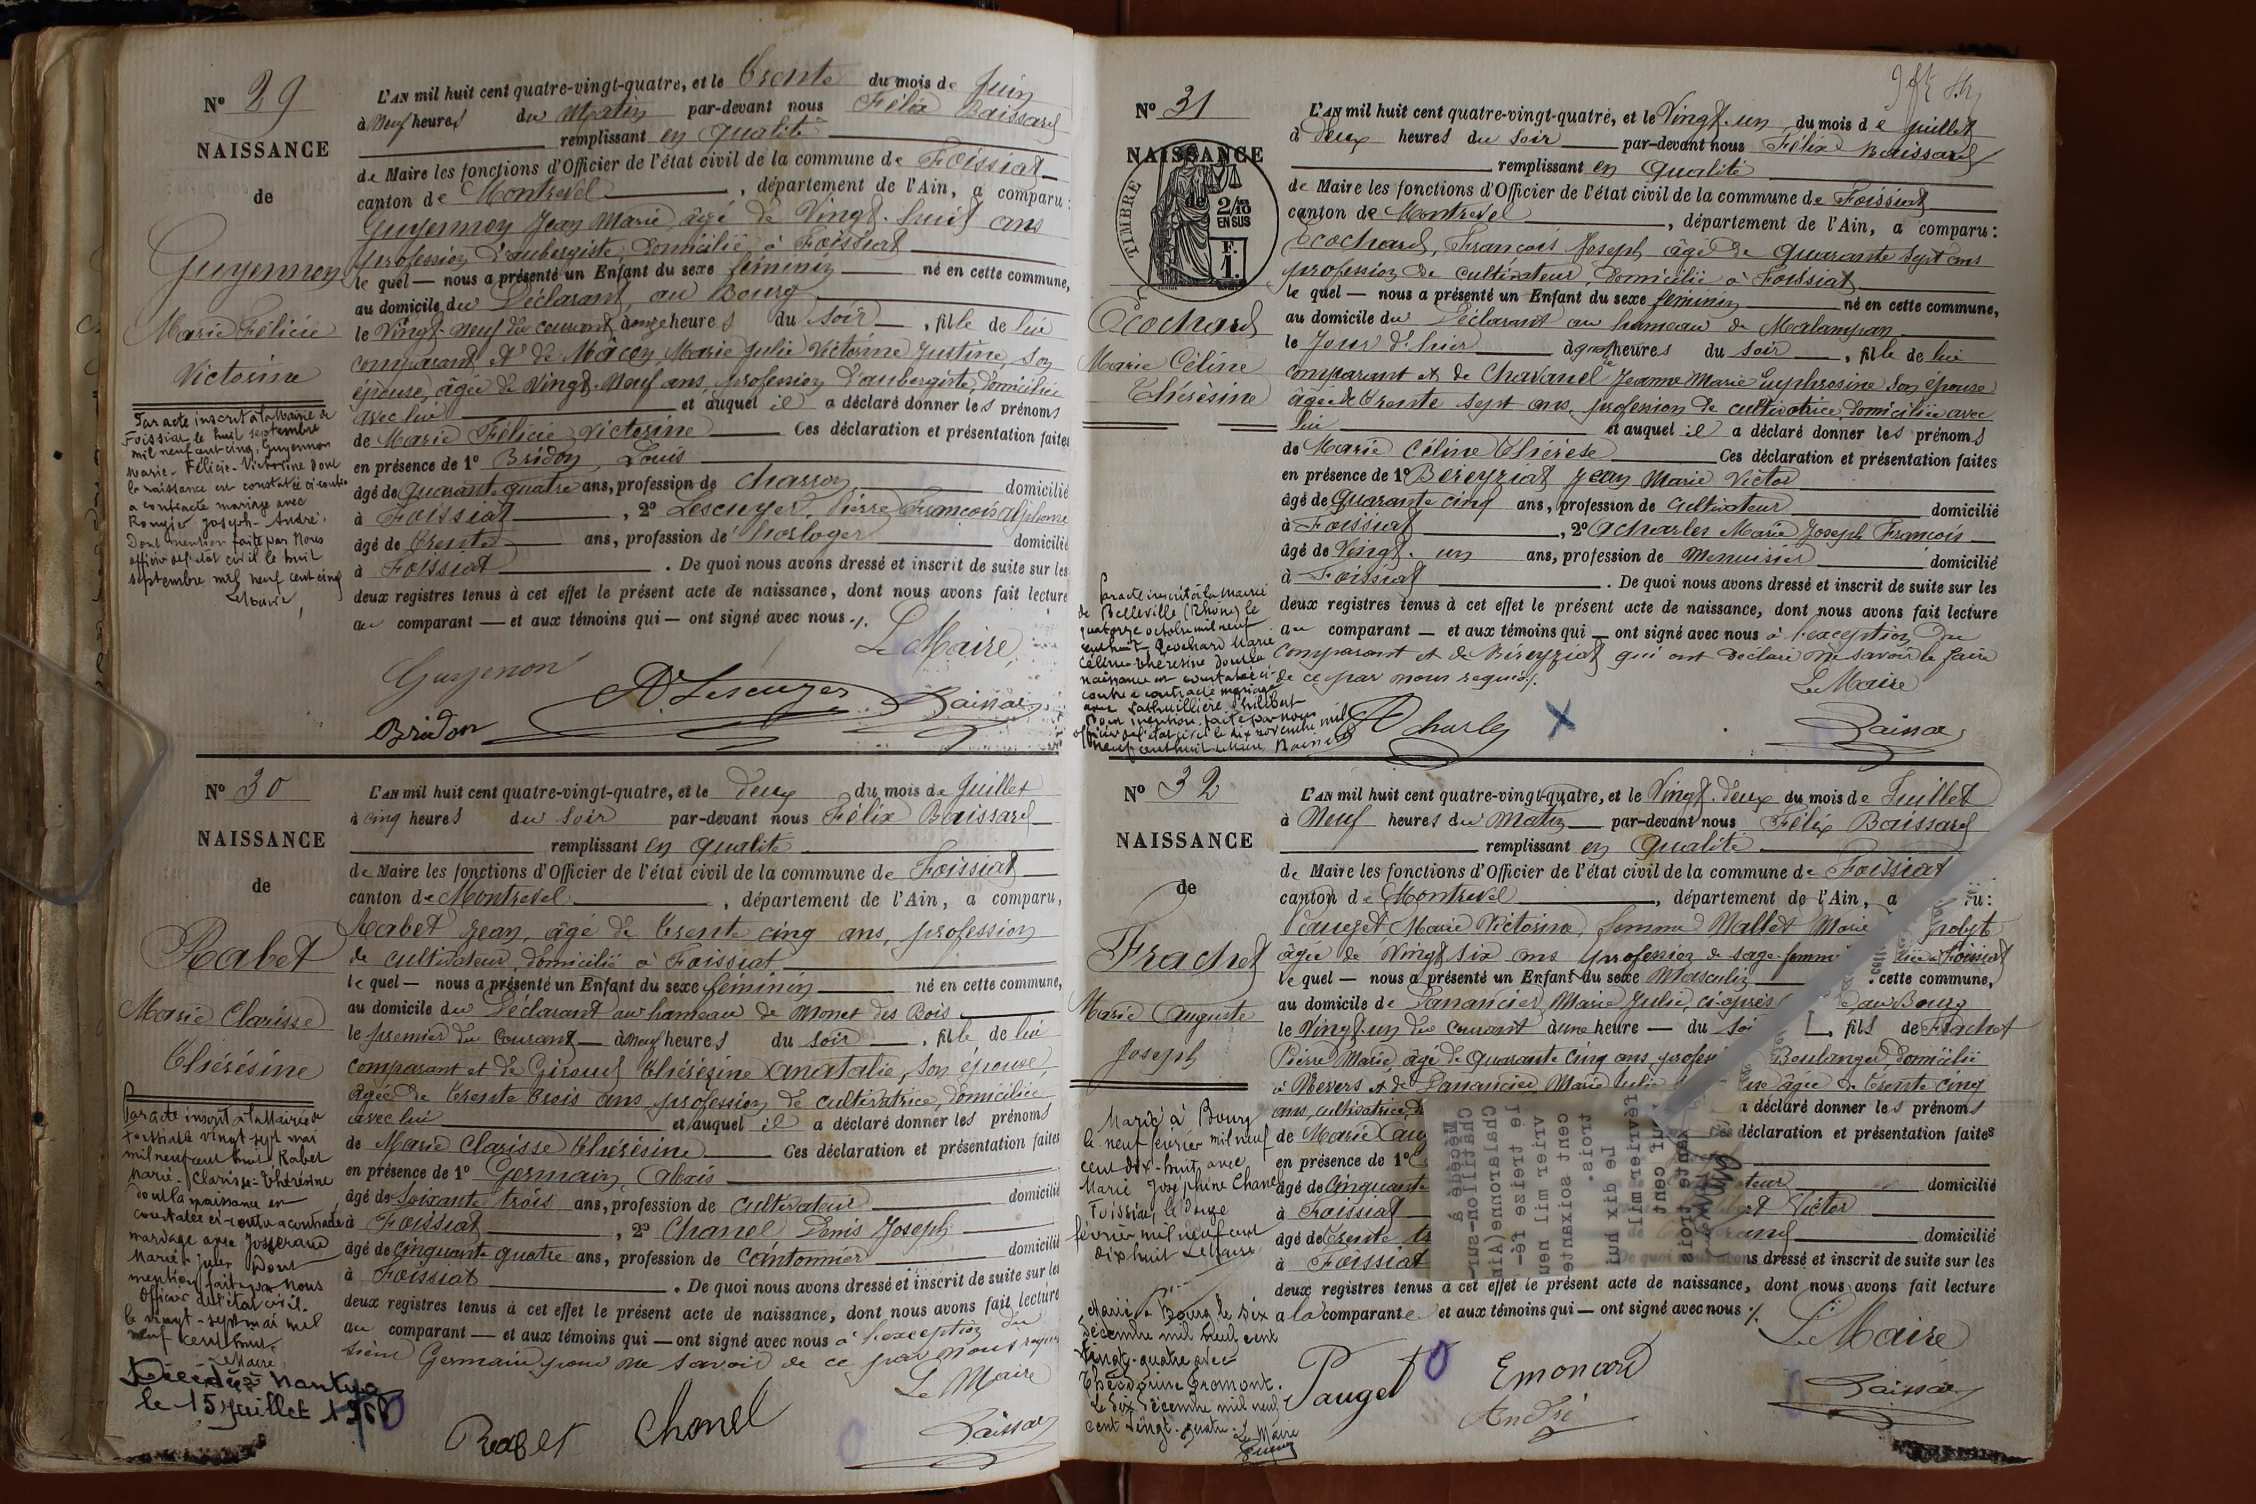 N° 29
NAISSANCE
de
Guyennon
Marie Félicie
Victorine
Par acte inscrit à la Mairie de
Foissiat le huit septembre
mil neuf cent cinq, Guyennon
Marie-Félicie-Victorine dont
la naissance est constatée ci-contre
a contracté mariage avec
Joseph-André.
Dont mention faite par Nous
officier de l'état civil le huit
septembre mil neuf cent cinq
Le Maire,
L'AN mil huit cent quatre-vingt-quatre, et le Trente du mois de Juin
à Neuf heures du Matin par-devant nous Félix Baissard
remplissant en qualité
de Maire les fonctions d'Officier de l'état civil de la commune de Foissiat
canton de Montrevel, département de l'Ain, a comparu :
Guyennon Jean Marie âgé de Vingt-huit ans
profession d'aubergiste, domicilié à Foissiat
le quel — nous a présenté un Enfant du sexe féminin né en cette commune,
au domicile du Déclarant, au Bourg
le Vingt-neuf du courant à onze heures du soir, fille de lui
comparant et de Mâcon, Marie Julie Victorine Justine son
épouse, âgée de Vingt-Neuf ans, profession d'aubergiste, domiciliée
avec lui et auquel il a déclaré donner les prénoms
de Marie Félicie Victorine Ces déclaration et présentation faites
en présence de 1° Bridon, Louis
âgé de quarante quatre ans, profession de charron domicilié
à Foissiat, 2° Lescuyer, Pierre François Alphonse
âgé de Trente ans, profession de horloger domicilié
à Foissiat. De quoi nous avons dressé et inscrit de suite sur les
deux registres tenus à cet effet le présent acte de naissance, dont nous avons fait lecture
au comparant — et aux témoins qui — ont signé avec nous ./.
Le Maire,
Guyenon
Bridon
A. Lescuyer
Baissard
N° 30
NAISSANCE
de
Rabet
Marie Clarisse
Thérésine
Par acte inscrit à la Mairie de
Foissiat le vingt sept mai
mil neuf cent huit Rabet
Marie-Clarisse-Thérésine
dont la naissance est
constatée ci-contre a contracté
mariage avec Josserand
Marie Jules Dont
mention faite par Nous
Officier de l'état civil.
le vingt-sept mai mil
neuf cent huit.
Le Maire,
Décédée à Nantua
le 15 juillet
L'AN mil huit cent quatre-vingt-quatre, et le deux du mois de Juillet
à cinq heures du soir par-devant nous Félix Baissard
remplissant en qualité
de Maire les fonctions d'Officier de l'état civil de la commune de Foissiat
canton de Montrevel, département de l'Ain, a comparu,
Rabet Jean, âgé de trente cinq ans, profession
de cultivateur, domicilié à Foissiat
le quel — nous a présenté un Enfant du sexe féminin né en cette commune,
au domicile du Déclarant au hameau de Monet des Bois
le premier du courant à Neuf heures du soir, fille de lui
comparant et de Giroud Thérésine Anatalie, son épouse,
âgée de trente trois ans, profession de cultivatrice, domiciliée
avec lui et auquel il a déclaré donner les prénoms
de Marie Clarisse Thérésine Ces déclaration et présentation faites
en présence de 1° Germain, Alexis
âgé de soixante trois ans, profession de cultivateur domicilié
à Foissiat, 2° Chanel Denis Joseph
âgé de cinquante quatre ans, profession de cantonnier domicilié
à Foissiat. De quoi nous avons dressé et inscrit de suite sur les
deux registres tenus à cet effet le présent acte de naissance, dont nous avons fait lecture
au comparant — et aux témoins qui — ont signé avec nous à l'exception du
sieur Germain pour ne savoir de ce par nous requis
Le Maire
Rabet
Chanel
Baissard
N° 31
NAISSANCE
de
TIMBRE
2/10
EN SUS
F.
1.
Ecochard
Marie Céline
Thérésine
Par acte inscrit à la Mairie
de Belleville (Rhône) le
quatorze octobre mil neuf
cent huit, Ecochard Marie
Céline Thérésine dont la
naissance est constatée ci-
contre a contracté mariage
avec Lathuillière Philibert
Dont mention faite par nous
officier de l'état civil le dix novembre mil
neuf cent huit Le Maire
L'AN mil huit cent quatre-vingt-quatre, et le Vingt-un du mois de juillet
à deux heures du soir par-devant nous Félix Baissard
remplissant en qualité
de Maire les fonctions d'Officier de l'état civil de la commune de Foissiat
canton de Montrevel, département de l'Ain, a comparu :
Ecochard, François Joseph, âgé de quarante sept ans
profession de cultivateur, domicilié à Foissiat
le quel — nous a présenté un Enfant du sexe féminin né en cette commune,
au domicile du Déclarant au hameau de Malampan
le Jour d'hier à heures du soir, fille de lui
comparant et de Chavanel Jeanne Marie Euphrosine son épouse
âgée de trente sept ans, profession de cultivatrice, domiciliée avec
lui et auquel il a déclaré donner les prénoms
de Marie Céline Thérèse Ces déclaration et présentation faites
en présence de 1° Béreyziat Jean Marie Victor
âgé de quarante cinq ans, profession de cultivateur domicilié
à Foissiat, 2° Acharles Marie Joseph François
âgé de Vingt-un ans, profession de menuisier domicilié
à Foissiat. De quoi nous avons dressé et inscrit de suite sur les
deux registres tenus à cet effet le présent acte de naissance, dont nous avons fait lecture
au comparant — et aux témoins qui — ont signé avec nous à l'exception du
comparant et de Béreyziat qui ont déclaré ne savoir le faire
de ce par nous requis ./.
Le Maire
Acharles
Baissard
N° 32
NAISSANCE
de
Frachet
Marie Auguste
Joseph
Marié à Bourg
le neuf février mil neuf
cent dix-huit avec
Marie Joséphine Chanel
Foissiat, le douze
février mil neuf cent
dix huit Le Maire
Marié à Bourg le six
décembre mil neuf cent
vingt-quatre avec
Théodorine Fromont.
Le dix décembre mil neuf
cent vingt-quatre. Le Maire
L'AN mil huit cent quatre-vingt-quatre, et le Vingt-deux du mois de Juillet
à Neuf heures du Matin par-devant nous Félix Baissard
remplissant en qualité
de Maire les fonctions d'Officier de l'état civil de la commune de Foissiat
canton de Montrevel, département de l'Ain, a
Pauget Marie Victorine, femme Mallet Marie
âgée de Vingt six ans profession de sage-femme à Foissiat
le quel — nous a présenté un Enfant du sexe Masculin cette commune,
au domicile de Panancier, Marie Julie, ci-après au Bourg
le Vingt-un du courant à une heure — du soi fils de Frachet
Pierre Marie, âgé de quarante cinq ans profes Boulanger, domicilié
à Nevers et de Panancier Marie Julie âgée de trente cinq
ans, cultivatrice, a déclaré donner les prénoms
de Marie Aug déclaration et présentation faites
en présence de 1°
âgé de cinquante teur domicilié
à Foissiat Victor
âgé de Trente domicilié
à Foissiat De quoi nous avons dressé et inscrit de suite sur les
deux registres tenus à cet effet le présent acte de naissance, dont nous avons fait lecture
à la comparante et aux témoins qui — ont signé avec nous ./.
Le Maire
Décédé à
Châtillon-sur-
Chalaronne(Ain)
le treize fé-
vrier mil neu
cent soixante
trois.
Le dix hui
février mil
neuf cent
soixante trois
Pauget
Emonard
André
Baissard